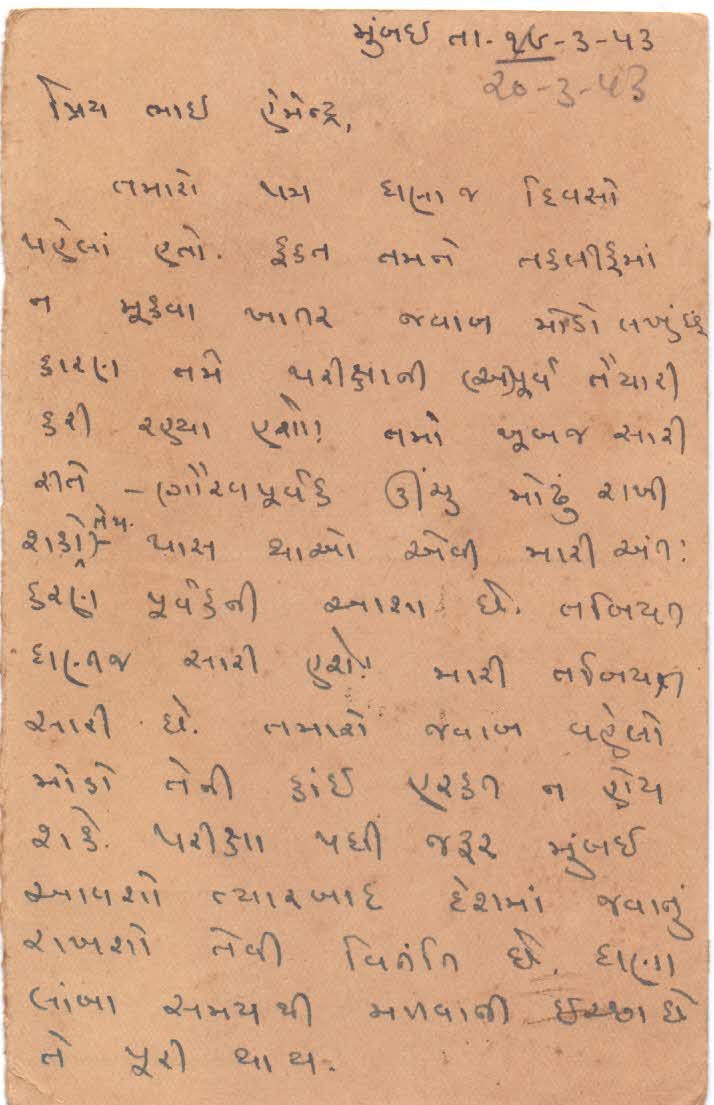 મુંબઈ તા. ૧૯-૩-૫૩
૨૦-૩-૫૩
પ્રિય ભાઈ હેમેન્દ્ર,
તમારો પત્ર ઘણા જ દિવસો
પહેલાં હતો. ફક્ત તમને તકલીફમાં
ન મૂકવા ખાતર જવાબ મોડો લખું છું
કારણ તમે પરીક્ષાની અપૂર્વ તૈયારી
કરી રહ્યા હશો! તમો ખૂબજ સારી
રીતે – ગૌરવપૂર્વક ઊંચુ મોઢું રાખી
શકો તેમ – પાસ થાઓ એવી મારી અંત:
કરણ પૂર્વકની આશા છે. તબિયત
ઘણીજ સારી હશે! મારી તબિયત
સારી છે. તમારો જવાબ વહેલો
મોડો તેની કાંઈ હરકત ન હોય
શકે. પરીક્ષા પછી જરૂર મુંબઈ
આવશો ત્યારબાદ દેશમાં જવાનું
રાખશો તેવી વિનંતિ છે. ઘણા
લાંબા સમયથી મળવાની ઈચ્છા છે
તે પૂરી થાય.